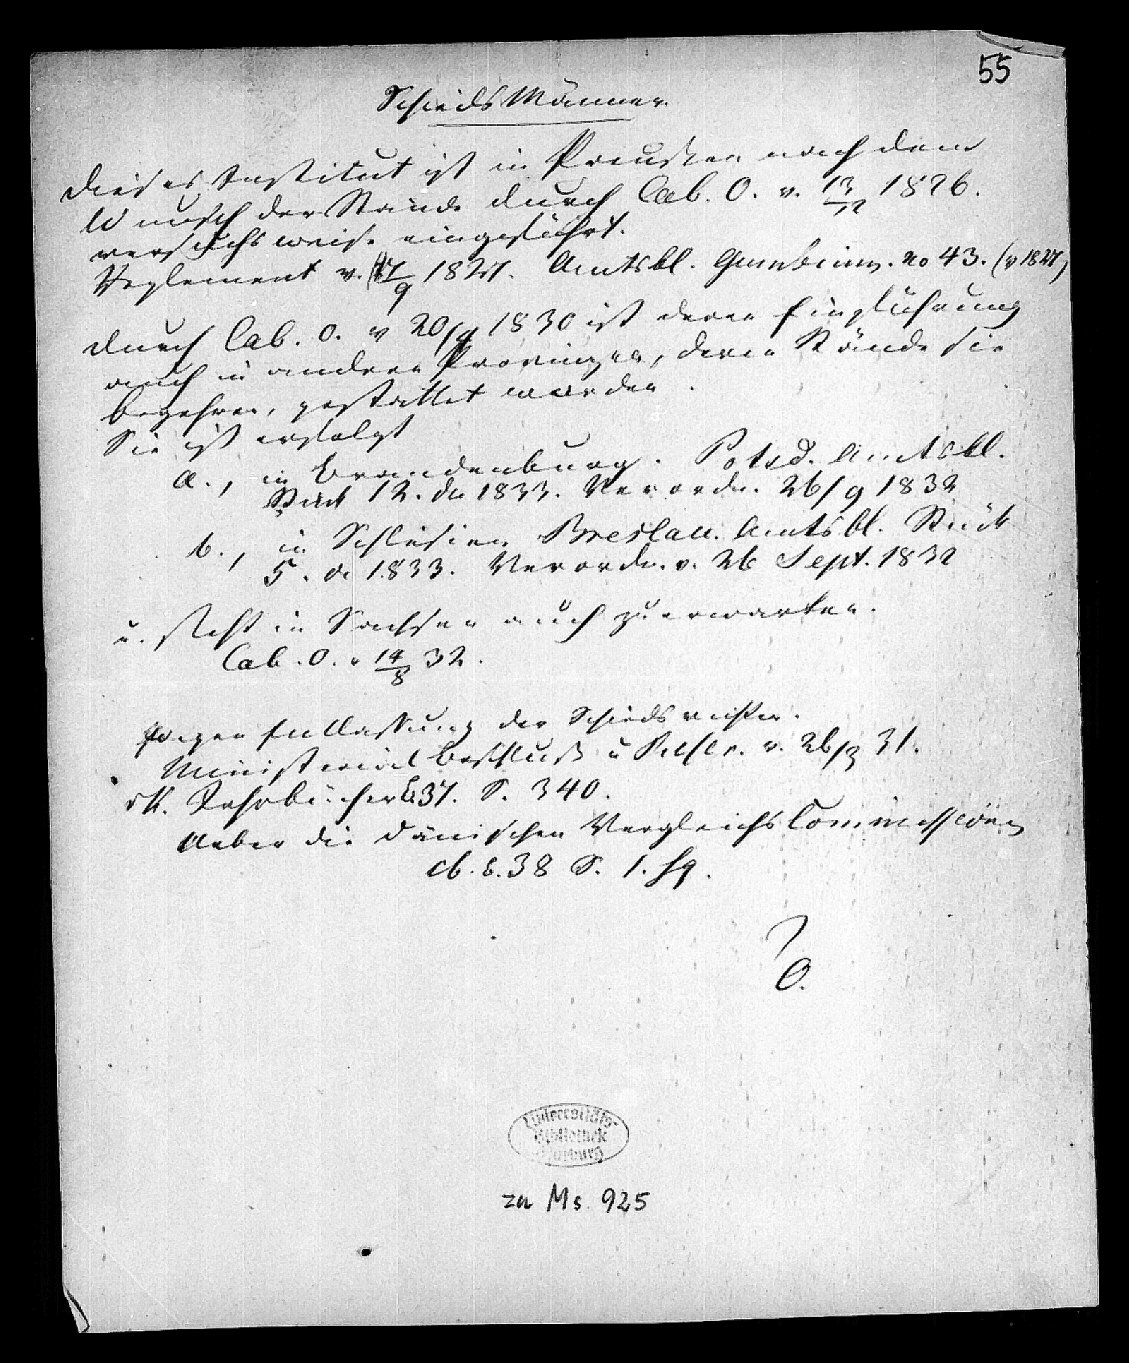 55
Schieds Männer.
Dieses Institut ist in Preußen nach dem
Wunsch der Stände durch Cab. O. v. 13/12 1826.
versuchsweise eingeführt.
Reglement v. 7/9 1827. Amtsbl. Gumbinn. no 43. (v 1827)
durch Cab. O. v 20/9 1830 ist deren Einführung
auch in andern Provinzen, deren Stände sie
begehren, gestattet worden.
Sie ist erfolgt
a., in Brandenburg. Potsd. Amtsbl.
Stück 12. de 1833. Verordn. 26/9 1832
b., in Schlesien Breslau. Amtsbl. Stück
5. de 1833. Verordn. v. 26 Sept. 1832
u. steht in Sachsen auch zu erwarten.
Cab. O. v 14/8 32.
Wegen Entlassung der Schieds
Ministerial Beschluß u v. 26/3 31.
Jahrbücher 37. S. 340.
Ueber die dänischen Vergleichs Commissionen
38 S. 1. fg.
O.
Universitäts-
Bibliothek
Marburg
zu Ms 925